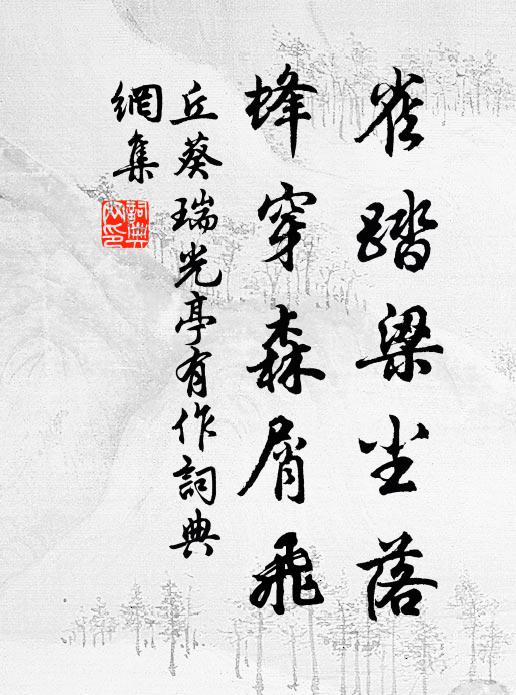 雀踏梁尘落
蜂穿森屑飛
丘葵瑞光亭有作詞典
網集
詞典